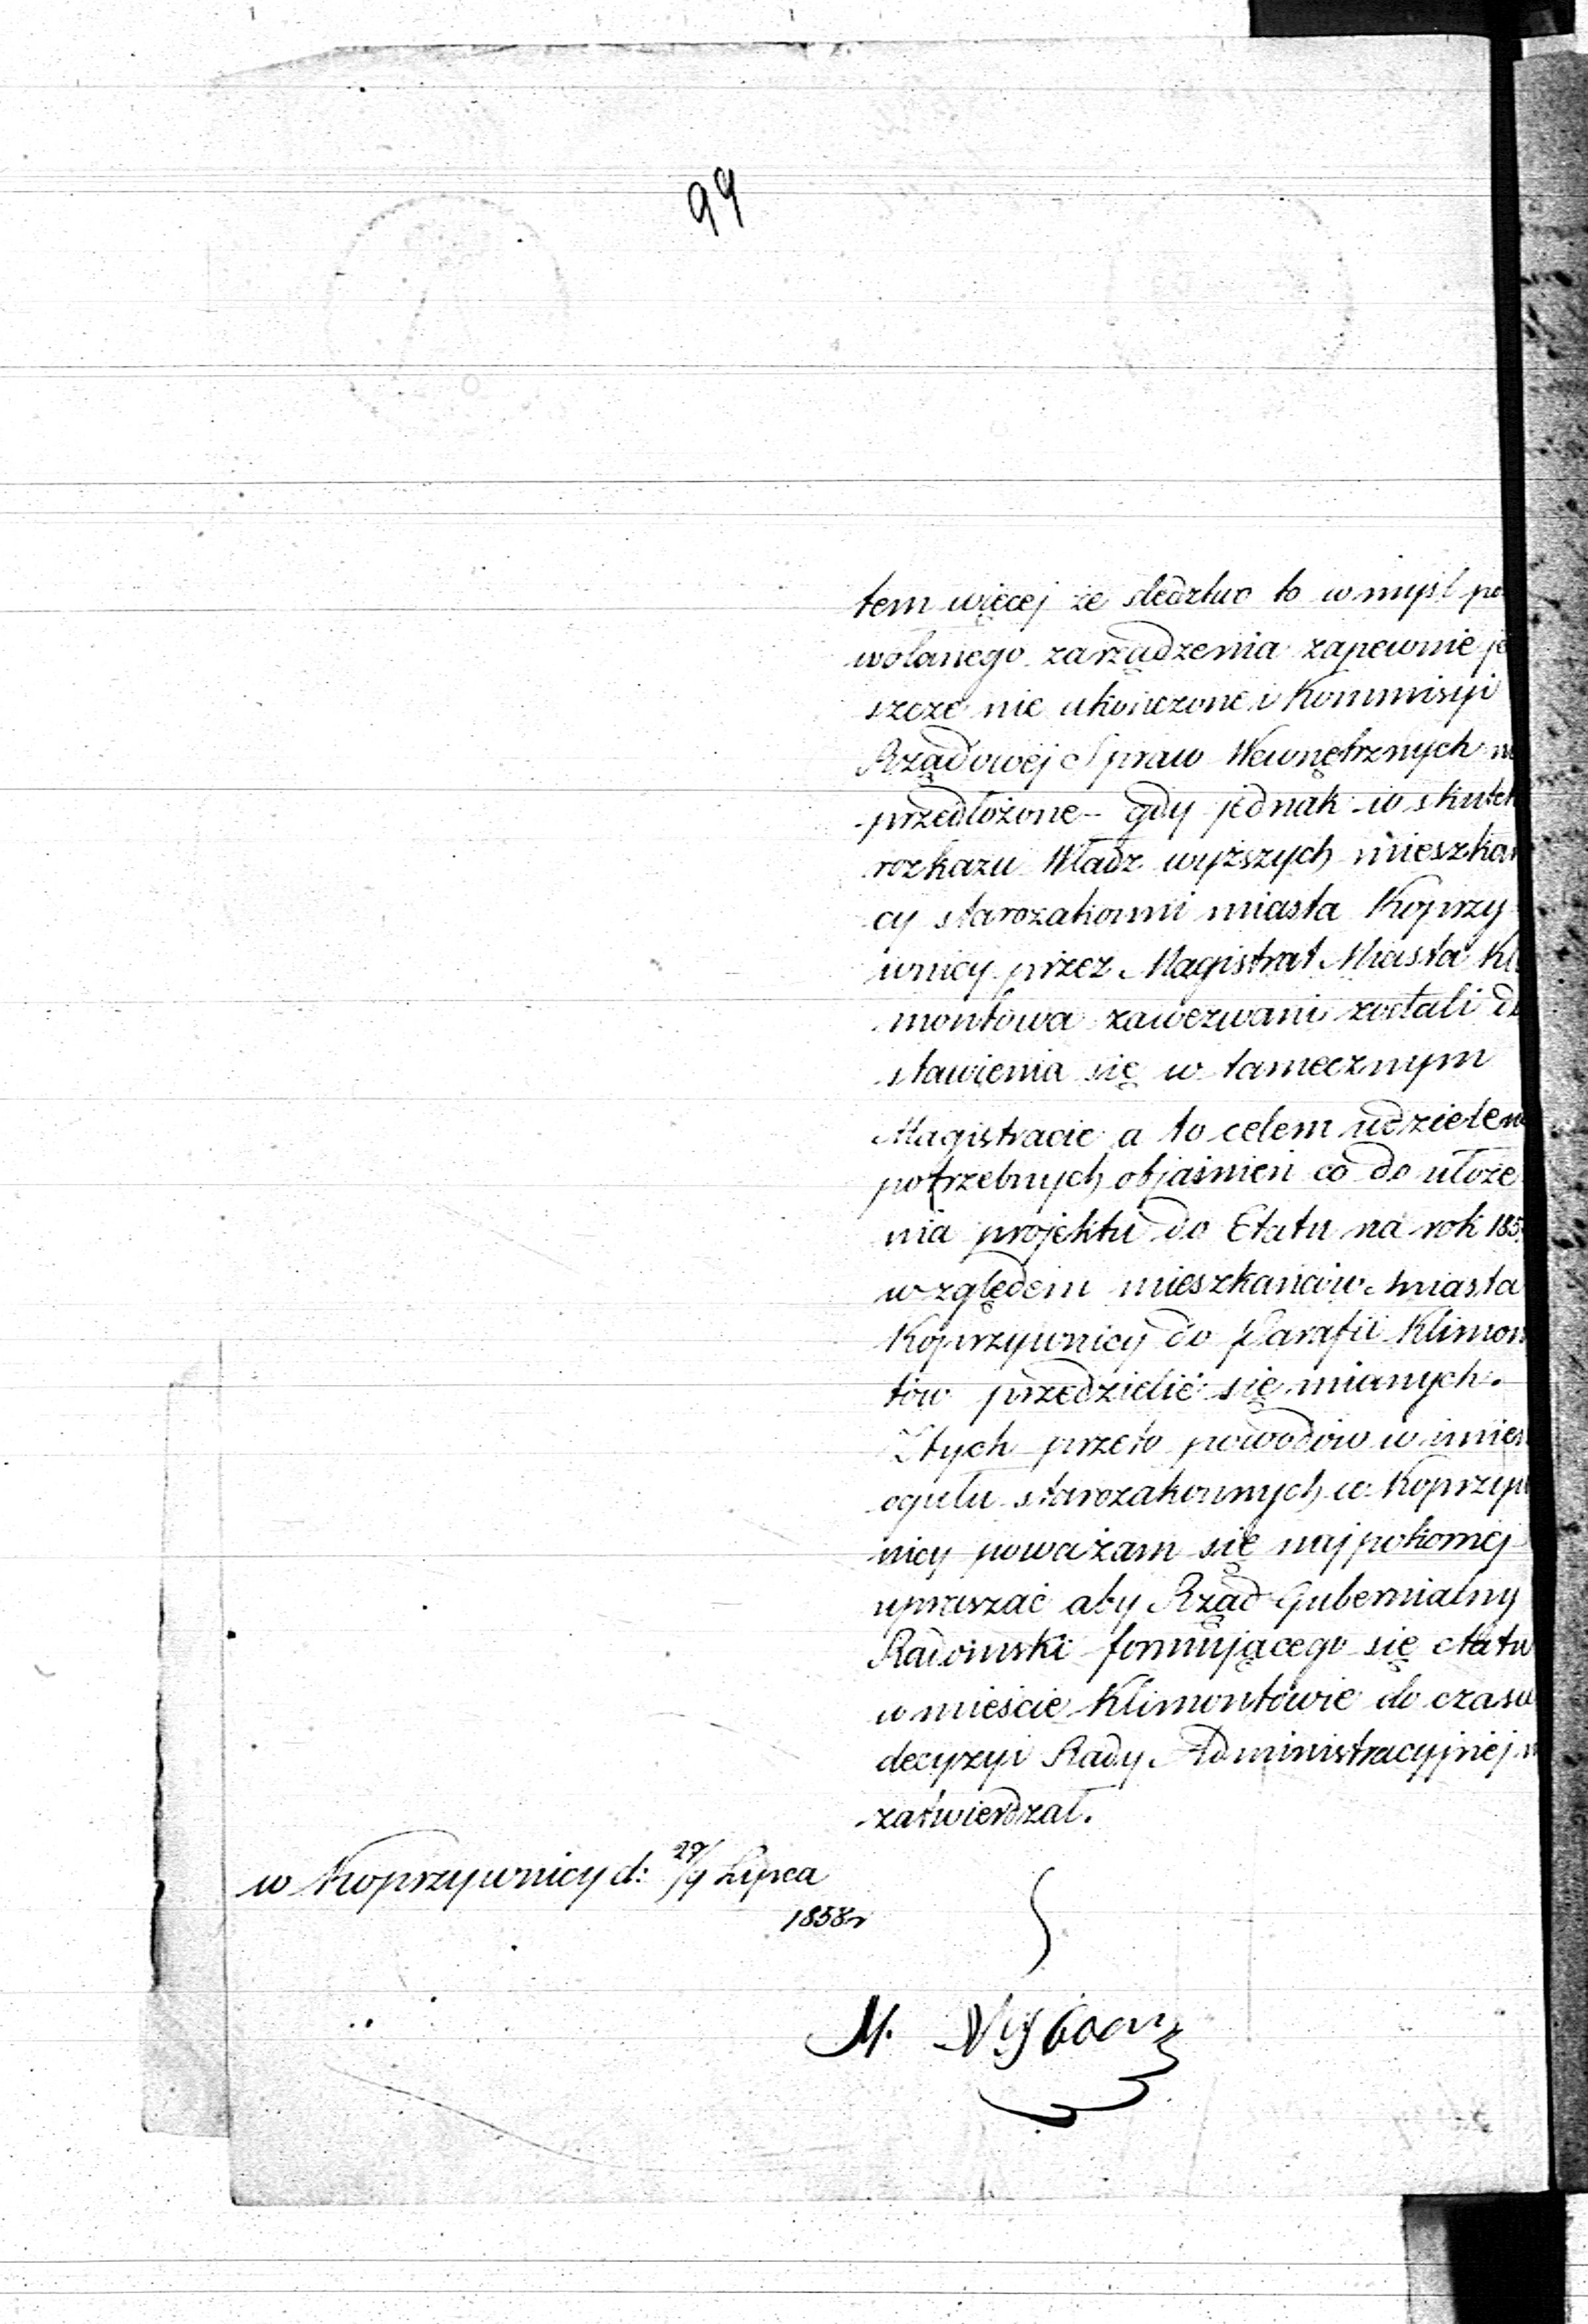 99
tem więcej że śledztwo to w myśl po
wołanego zarządzenia zapewnie je
szcze nie ukończone i Kommisyi
Rządowéj Spraw Wewnętrznych
przedłożone – gdy jednak w skutek
rozkazu Władz wyższych mieszkań
cy starozakonni miasta Koprzy
wnicy przez Magistrat Miasta Kli
montowa zawezwani zostali do
stawienia się w tamecznym
Magistracie a to celem udzielen
potrzebnych objaśnień co do ułoże
nia projektu do Etatu na rok 185
względem mieszkańców miasta
Koprzywnicy do Parafii Klimon
tów przedzielić się mianych.
Z tych przeto powodów w imien
ogułu starozakonnych w Koprzyw
nicy poważam się najpokorniéj
upraszać aby Rząd Gubernialny
Radomski formującego się etatu
w mieście Klimontowie do czasu
decyzyi Rady Administracyjnéj
zatwierdzał.
w Koprzywnicy d: 27/9 Lipca
1858r
M.